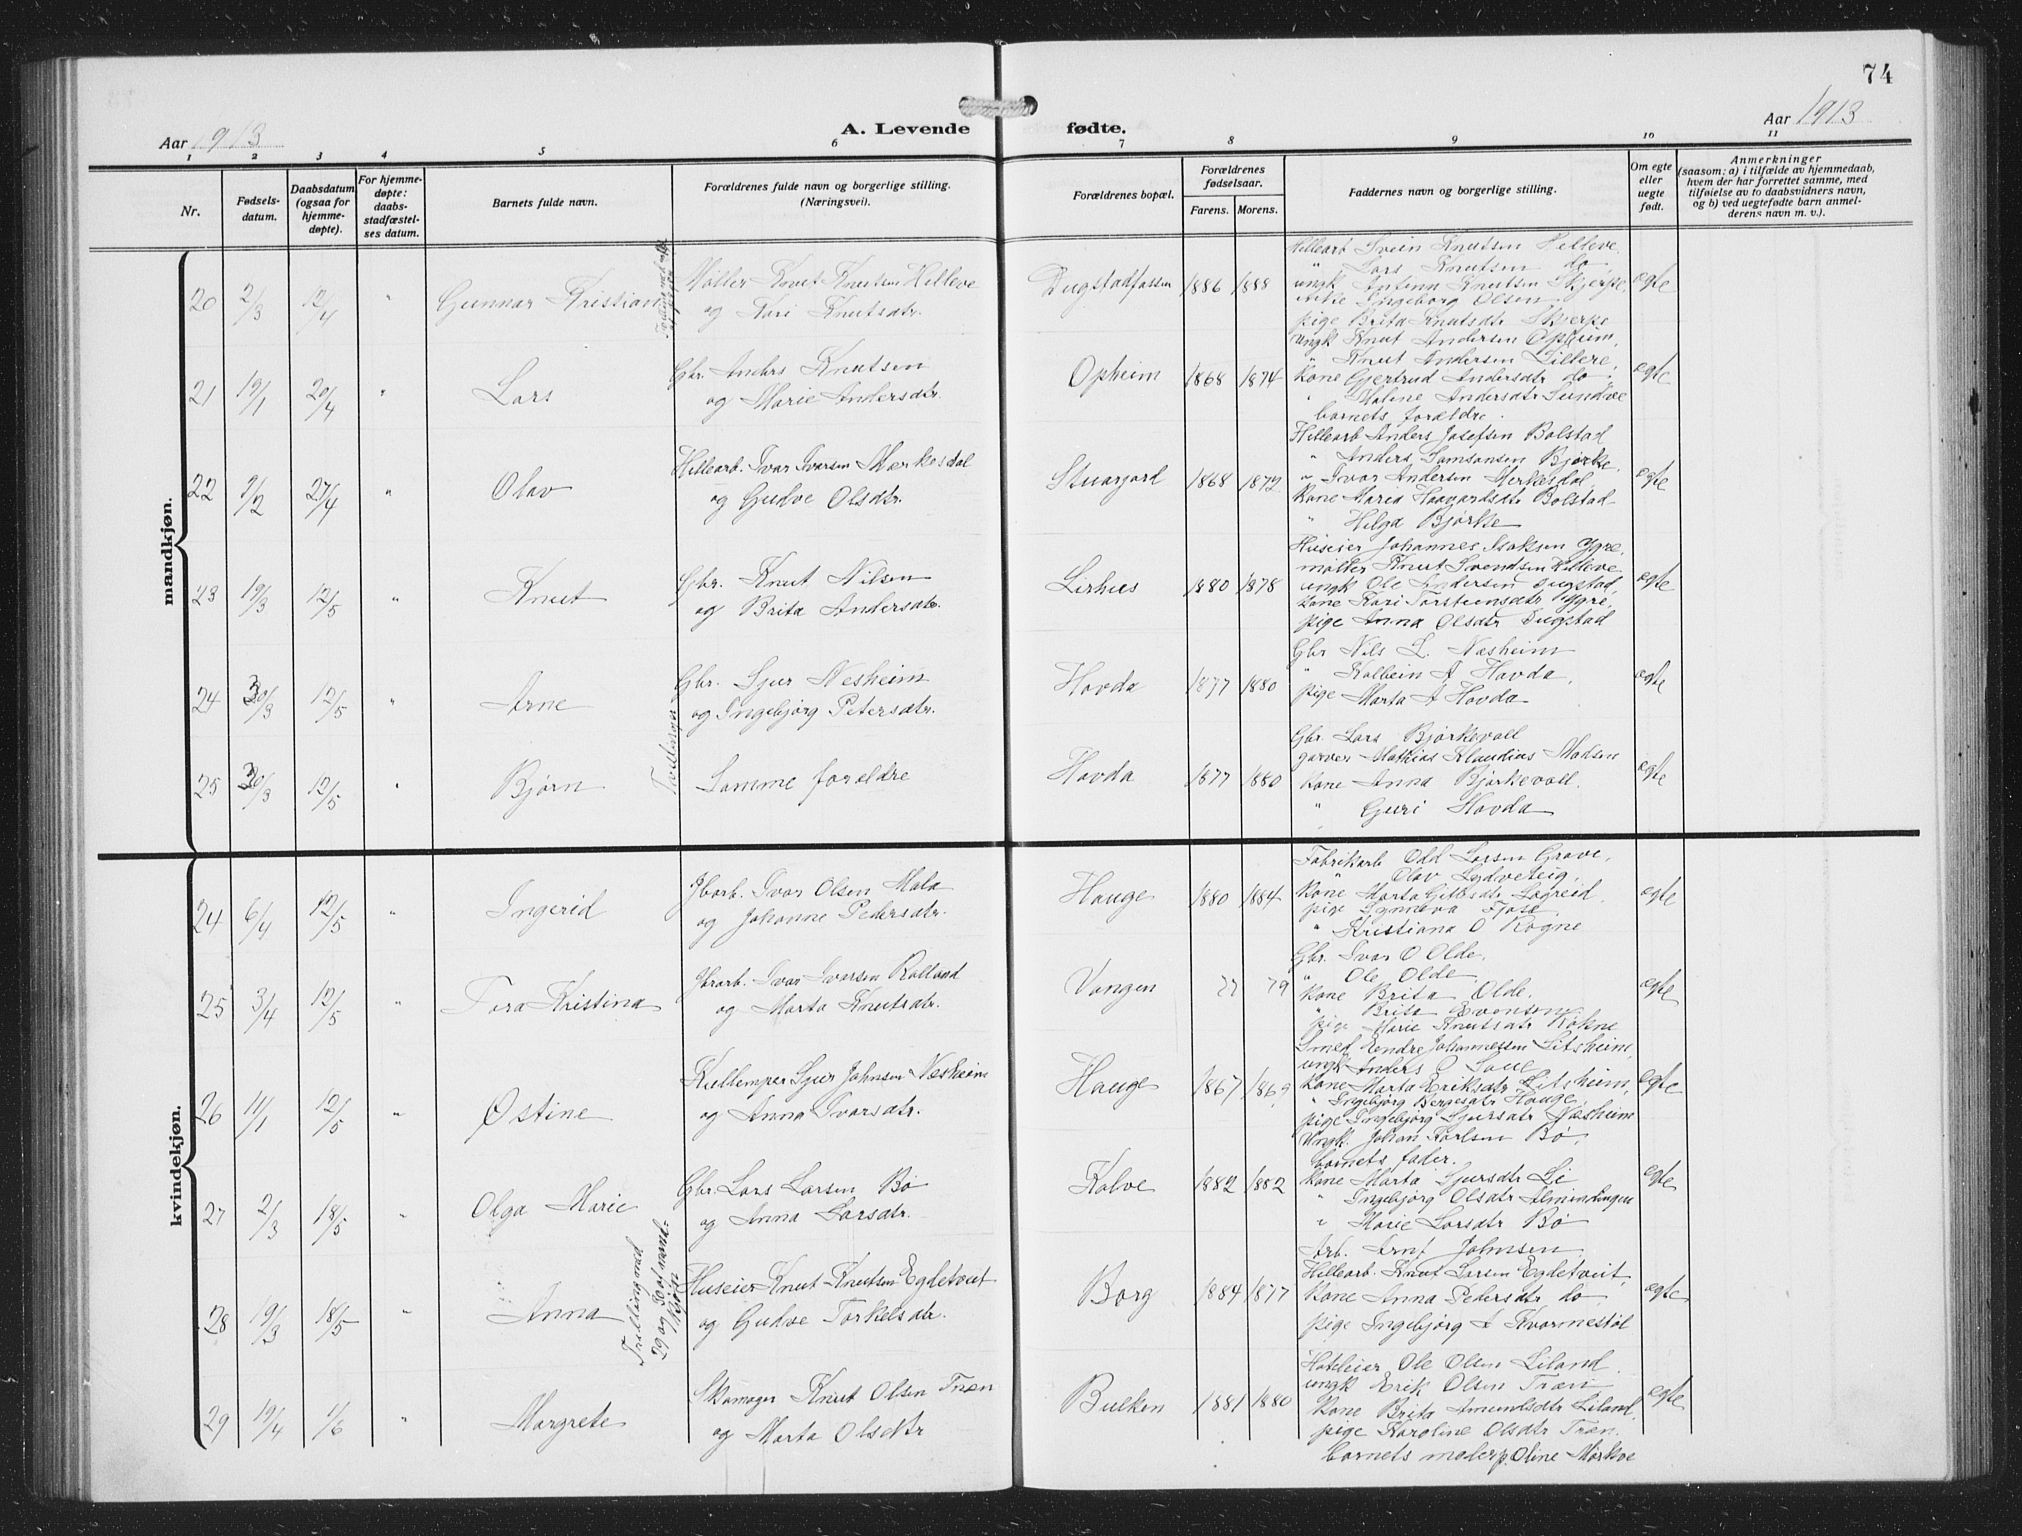 74
Aar 1913
A. Levende fødte.
Aar 1913
1 2 3 4 5 6 7 8 9 10 11
Nr.
Fødsels-
datum.
Daabsdatum
(ogsaa for
hjemme-
døpte).
For hjemme-
døpte:
daabs-
stadfæstel-
ses datum.
Barnets fulde navn.
Forældrenes fulde navn og borgerlige stilling.
(Næringsvei).
Forældrenes bopæl.
Forældrenes
fødselsaar.
Farens. Morens.
Faddernes navn og borgerlige stilling.
Om egte
eller
uegte
født.
Anmerkninger
(saasom: a) i tilfælde av hjemmedaab,
hvem der har forrettet samme, med
tilføielse av to daabsvidners navn,
og b) ved uegtefødte barn anmel-
derens navn m. v.).
mandkjøn.
20 2/3 12/4 " Gunnar Kristian
Møller Knut Knutsen Helleve
og Kari Knutsdtr.
Dugstadfossen 1886 1888
Hellearb Svein Knutsen Helleve
" Lars Knutsen do
ungk Anfinn Knutsen Skjerpe,
enke Ingeborg Olsen
pige Brita Knutsdtr Skjerpe
egte
21 19/1 20/4 " Lars
Gbr. Anders Knutsen
og Marie Andersdtr.
Opheim 1868 1874
Ungk Knut Andersen Opheim,
" Knut Andersen Lillere,
Kone Gjertrud Andersdtr do.
" Maline Andersdtr Sundve
barnets forældre.
egte
22 9/2 27/4 " Olav
Hellearb. Ivar Ivarsen Mærkesdal
og Gudve Olsdtr.
1868 1872
Hellearb Anders Josefsen Bolstad
" Anders Samsonsen Bjørke,
" Ivar Andersen Merkesdal,
Kone Maria Haavardsdtr Bolstad
" Helga Bjørke
egte
23 19/3 12/5 " Knut
Gbr. Knut Nilsen
og Brita Andersdtr.
Lirhus 1880 1878
Huseier Johannes Isaksen Ygre,
møller Knut Svendsen Helleve,
ungk Ole Andersen Dugstad,
Kone Kari Torsteinsdtr Ygre,
pige Anna Olsdtr Dugstad
egte
24 30/3 12/5 " Arne
Tvillinger
Gbr. Sjur Nesheim
og Ingebjørg Petersdtr.
Hovda 1877 1880
Gbr Nils L. Næsheim
" Kolbein A Hovda,
pige Marta A Hovda
egte
25 30/3 12/5 " Bjørn
Samme forældre
Hovda 1877 1880
Gbr. Lars Bjørkevoll
garver Mathias Klaudius Madsen
Kone Anna Bjørkevoll,
" Guri Hovda
egte
kvindekjøn.
24 6/4 12/5 " Ingerid
Jbarb. Ivar Olsen Mala
og Johanne Pedersdtr.
Hauge 1880 1884
Fabrikarb Odd Larsen Grove,
" Olav Lydveteig,
Kone Marta Løgreid,
pige Synneva Fjose
" Kristiana O Rogne
egte
25 3/4 12/5 " Tora Kristina
Jbarb. Ivar Ivarsen Rolland
og Marta Knutsdtr.
Vangen 77 79
Gbr. Ivar O Olde,
" Ole Olde
Kone Brita Olde,
" Brita Evensen
pige Marie Knutsdtr Rokne
egte
26 11/1 12/5 " Østine
Sjur Johnsen Næsheim
og Anna Ivarsdtr.
Hauge 1867 1869
Smed Eendre Johannessen Sitsheim,
ungk Anders O Saue
Kone Marta Eriksdtr Sitsheim,
" Ingebjørg Bergesdtr Hauge,
pige Ingebjørg Sjursdtr Næsheim
egte
27 2/3 18/5 " Olga Marie
Gbr. Lars Larsen Bø
og Anna Larsdtr.
Kolve 1882 1882
Ungk. Johan Karlsen Bø,
barnets fader.
Kone Marta Sjursdtr Li
" Ingebjørg Olsdtr Almindingen
" Marie Larsdtr Bø
egte
28 19/3 18/5 " Anna
Tvilling med
29 og 30 af mand-
kjøn
Huseier Knut Knutsen Egdetveit
og Gudve Torkelsdtr.
Borg 1884 1877
Arb. Arnf Johnsen
Hellearb. Knut Larsen Egdetveit,
Kone Anna Pedersdtr do,
pige Ingebjørg A Kvarmestøl
egte
29 19/4 1/6 " Margrete
Skomager Knut Olsen Træn
og Marta Olsdtr
Bulken 1881 1880
Hoteleier Ole Olsen Liland,
ungk Erik Olsen Træn
Kone Brita Amundsdtr Liland,
pige Karoline Olsdtr Træn,
barnets moder, p. Oline Mørkve
egte